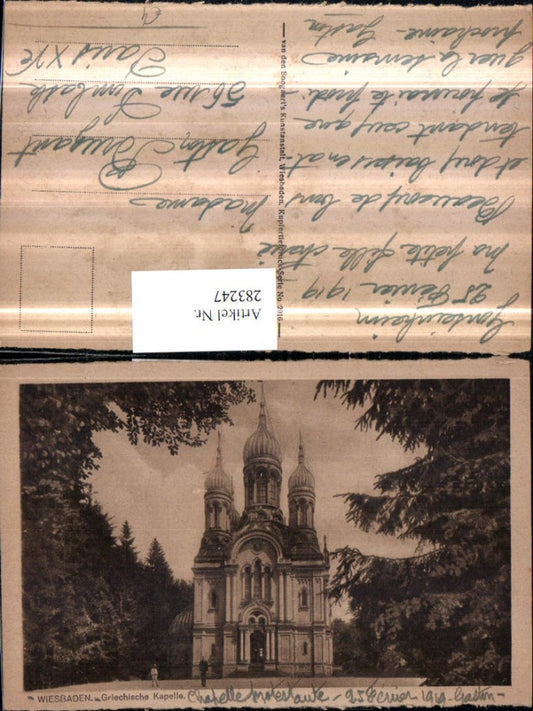 Gonsenheim
25 Février 1919
ma petite fille chérie
Beaucoup de bons
et doux baisers en at
tendant ceux que
je pourrai te prodi-
guer la semaine
prochaine - Gaston
van den Boogaart's Kunstanstalt, Wiesbaden. Kupfertiefdruck Serie No.
Madame
Gaston
56 rue
Paris XV
Artikel Nr.
283247
WIESBADEN. Griechische Kapelle.
Chapelle protestante - 25 Février 1919 - Gaston -